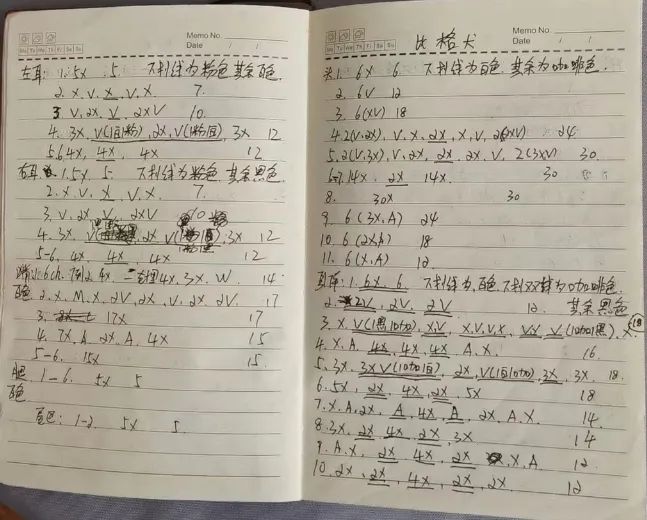 Memo No.
Mo Tu We Th Fr Sa Su
Date / /
左耳: 1. 5x 5. 下划线为粉色 其余白色.
2. x. V. x. V. x. 7.
3. V. 2x. V. 2xV 10.
4. 3x. V(1白1粉). 2x. V(1粉1白). 3x 12
5.6 4x. 4x. 4x 12
右耳 1. 5x. 5 下划线为粉色, 其余黑色.
2. x. V. x. V. x. 7.
3. V. 2x. V. 2xV 10
4. 3x. 2x 3x 12
5-6. 4x. 4x. 4x 12
6ch. 4x. 4x. 3x. W. 14
白色 2. x. M. x. 2V. 2x. V. 2x. 2V. 17
3. 17x 17
4. 7x. A. 2x. A. 4x 15
5-6. 15x 15.
1-6. 5x 5
白色
尾巴: 1-2 5x 5
Memo No.
Mo Tu We Th Fr Sa Su
Date / /
比格犬
头1. 6x 6. 下划线为白色, 其余为咖啡色.
2. 6V 12
3. 6(xV) 18
4. 2(V.2x), V. x. 2x, x, V, 2(2xV) 24
5. 2(V.3x), V. 2x, 2x. 2x. V. 2(3xV) 30.
6-7. 14x. 2x 14x. 30
8. 30x 30
9. 6(3x, A) 24
10. 6(2x, A) 18
11. 6(x, A) 12
身体: 1. 6x. 6. 下划线为白色, 下划双线为咖啡色
2. 2V, 2V. 2V 12. 其余黑色
3. x. V(1黑1咖), xV, x.V.Vx, Vx V(1咖1黑), x. 18
4. x. A. 4x, 4x. 4x A. x. 16
5. 3x. 3x V(1咖1白). 2x, V(1白1咖). 3x, 3x. 18.
6. 5x, 2x, 4x, 2x. 5x 18
7. x. A. 2x. A. 4x, A, 2x. A. x. 14.
8. 3x. 2x 4x. 2x, 3x 14
9. A. x. 2x 4x, 2x x. A 12
10. 2x, 2x, 4x, 2x, 2x 12